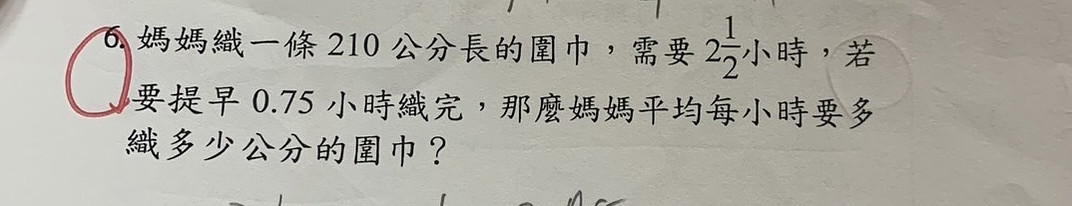 6. 媽媽織一條 210 公分長的圍巾，需要 2 1/2 小時，若
要提早 0.75 小時織完，那麼媽媽平均每小時要多
織多少公分的圍巾？